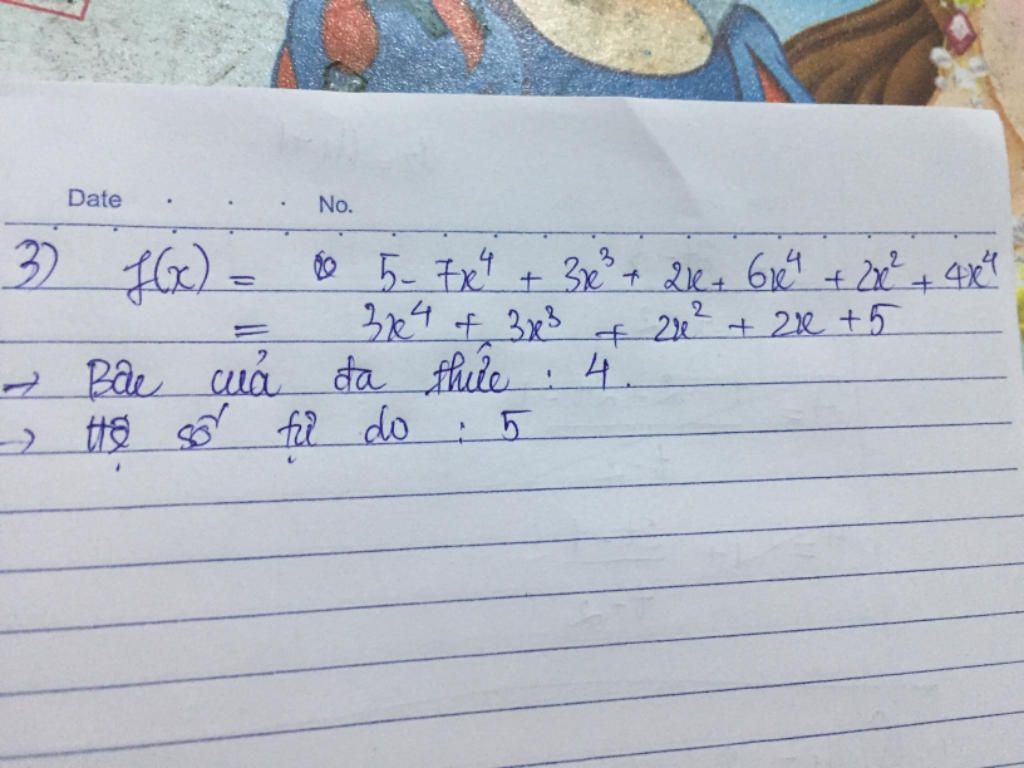 Date No.
3) f(x) = 5 - 7x⁴ + 3x³ + 2x + 6x⁴ + 2x² + 4x⁴
= 3x⁴ + 3x³ + 2x² + 2x + 5
→ Bậc của đa thức : 4.
→ Hệ số tự do : 5